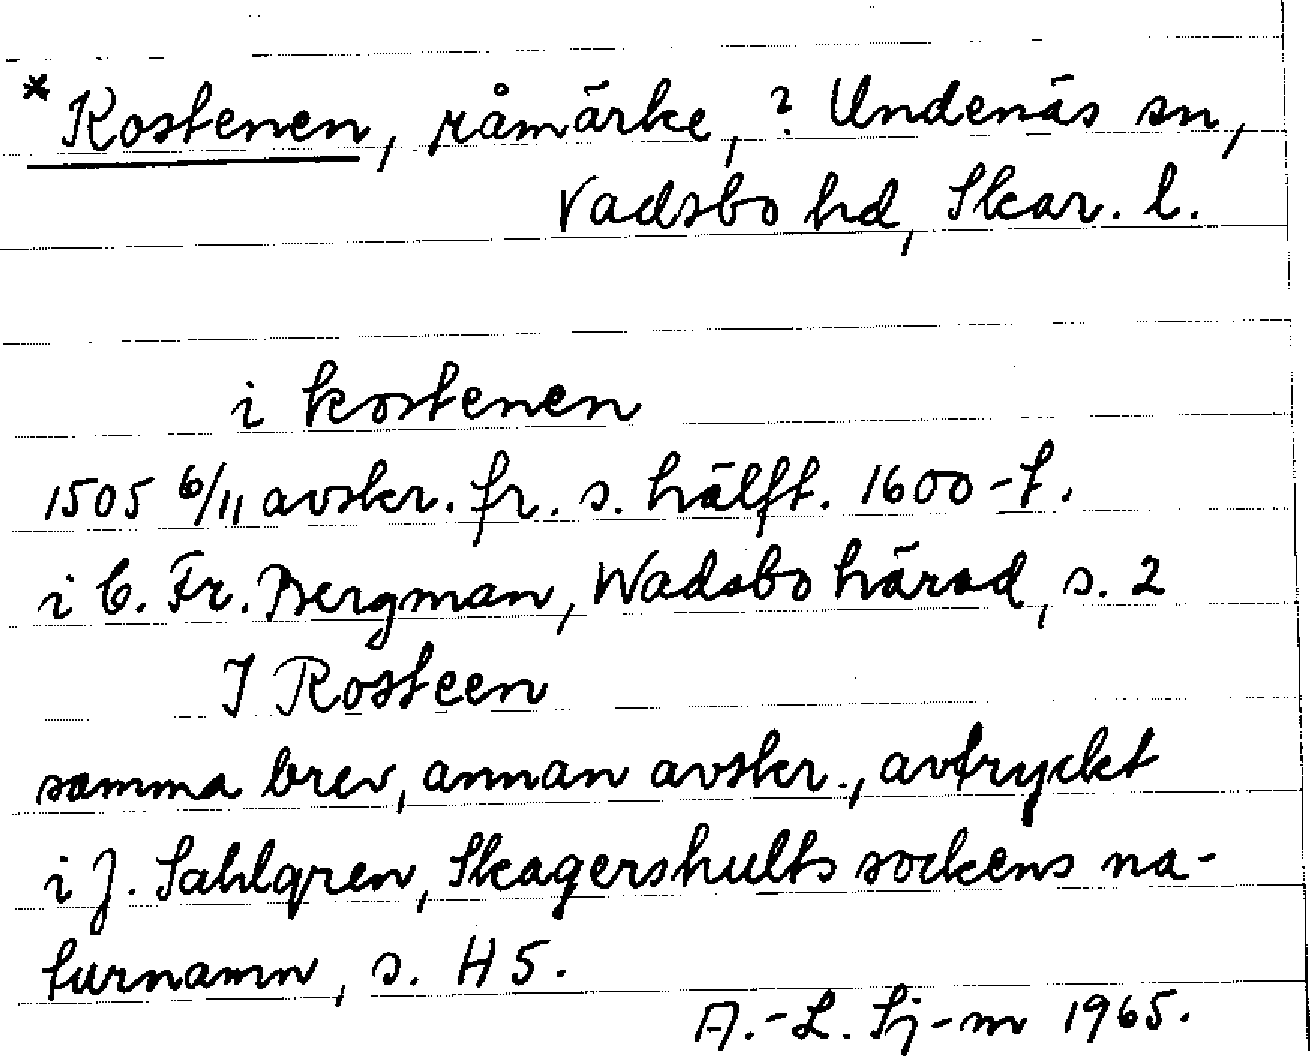 *Rostenen, råmärke, ? Undenäs sn,
Vadsbo hd, Skar. l.
i kostenen
1505 6/11 avskr. fr. s. hälft. 1600-t.
i C. Fr. Bergman, Wadsbo härad, s. 2
I Rosteen
samma brev, annan avskr., avtryckt
i J. Sahlgren, Skagershults sockens na-
turnamn, s. H 5.
A.-L. Sj-m 1965.